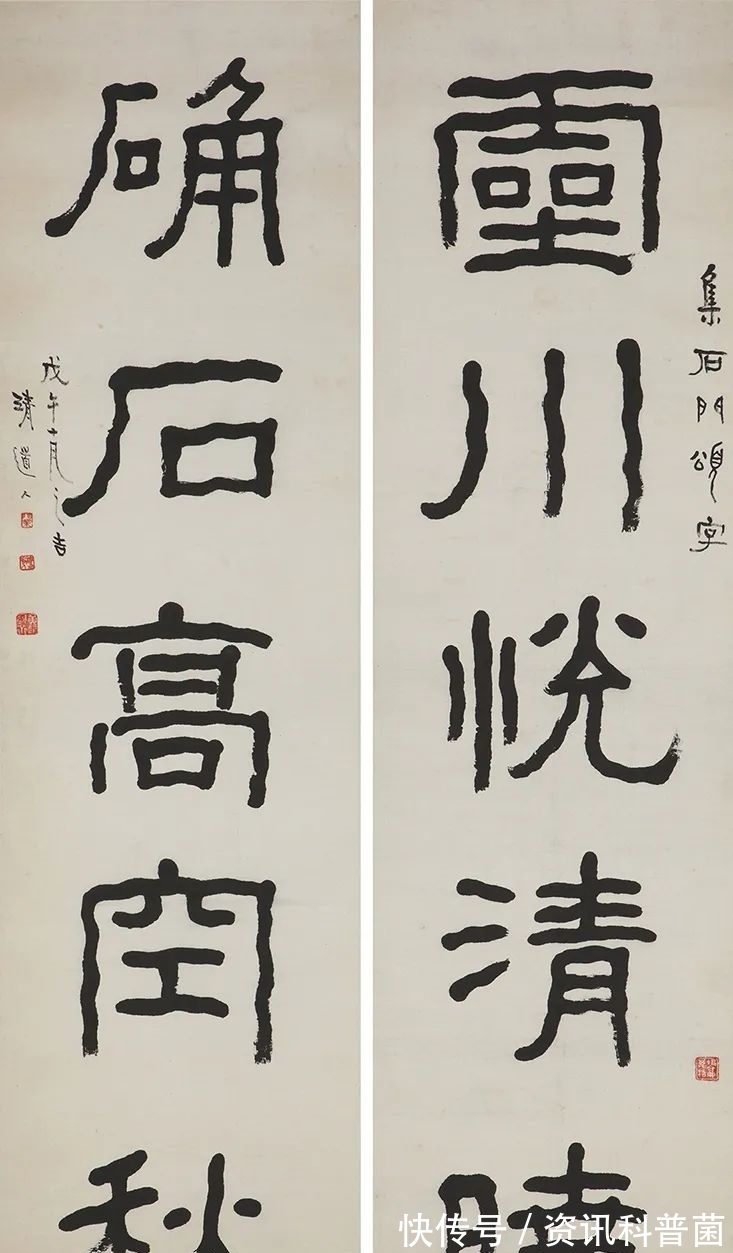 集石門頌字
靈川恍清
确石高空秋
戊午十月之吉
清道人
快传号／资讯科普菌